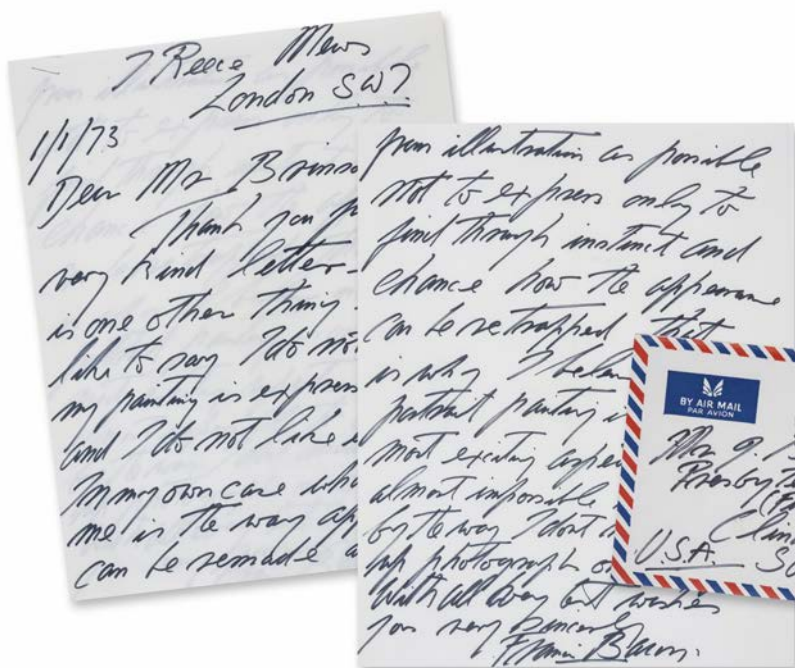 7 Reece Mews
London S.W7
1/1/73
Dear Mr Brinso
Thank you
very kind letter-
is one other thing
like to say I do not
my painting is express
and I do not like
In my own case wha
me is the way app
can be remade a
from illustration as possible
not to express only to
find through instinct and
chance how the appearance
can be retrapped that
is why I
portrait painting is
most exciting
almost impossible
by the way I dont
photograph
With all very best wishes
you very Sincerely
Francis Bacon.
BY AIR MAIL
PAR AVION
Mr
Presbyte
Clin
U.S.A.